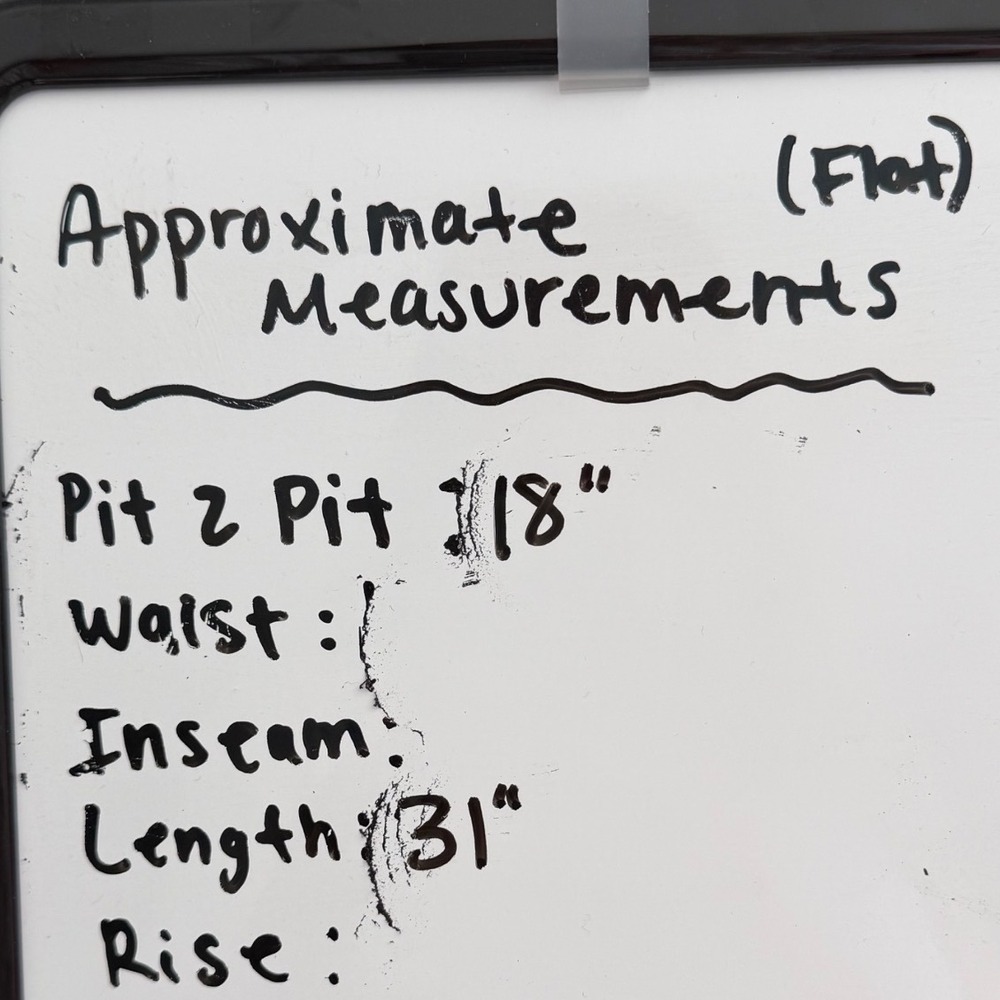 (Flat)
Approximate
Measurements
Pit 2 Pit : 18"
Waist :
Inseam :
Length : 31"
Rise :